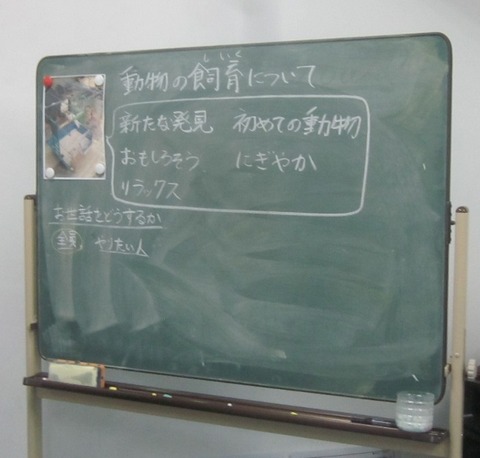 しいく
動物の飼育について
新たな発見 初めての動物
おもしろそう にぎやか
リラックス
お世話をどうするか
全員 やりたい人